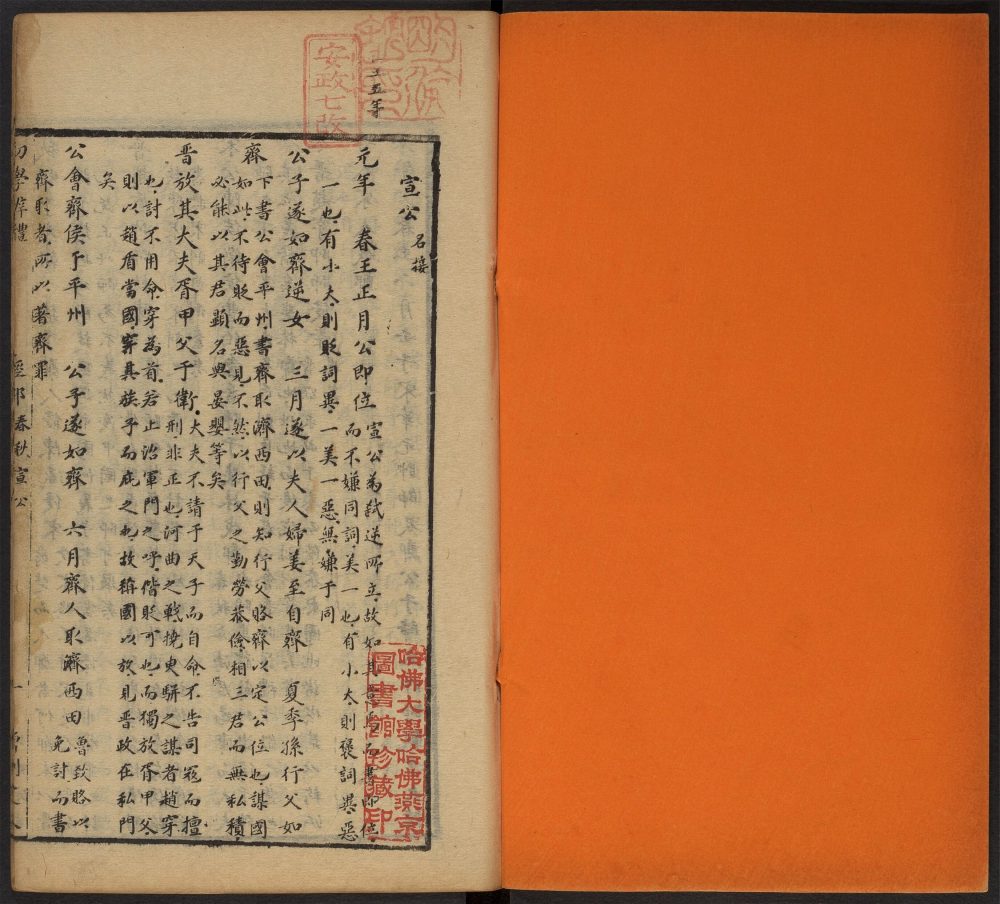 五年
安政七改
宣公 名接
元年 春王正月公即位 宣公為弒逆所立故如其
而不嫌同詞美一也有小大則褒詞異惡
一也有小大則貶詞異一美一惡無嫌于同
公子遂如齊逆女 三月遂以夫人婦姜至自齊 夏季孫行父如
齊 下書公會平州書齊取濟西田則知行父賂齊以定公位也謀國
如此不待貶而惡見不然以行父之勤勞恭儉相三君而無私積
必能以其君顯名與晏嬰等矣
晉放其大夫胥甲父于衛 大夫不請于天子而自命不告司寇而擅
刑非正也河曲之戰撓臾駢之謀者趙穿
也討不用命穿為首若止治軍門之呼偕貶可也而獨放胥甲父
則以趙盾當國穿其族子而庇之也故稱國以放見晉政在私門
矣
公會齊侯于平州 公子遂如齊 六月齊人取濟西田 魯致賂以
免討而書
齊取者所以著齊罪
經部春秋宣公 一
哈佛大學哈佛燕京
圖書館珍藏印